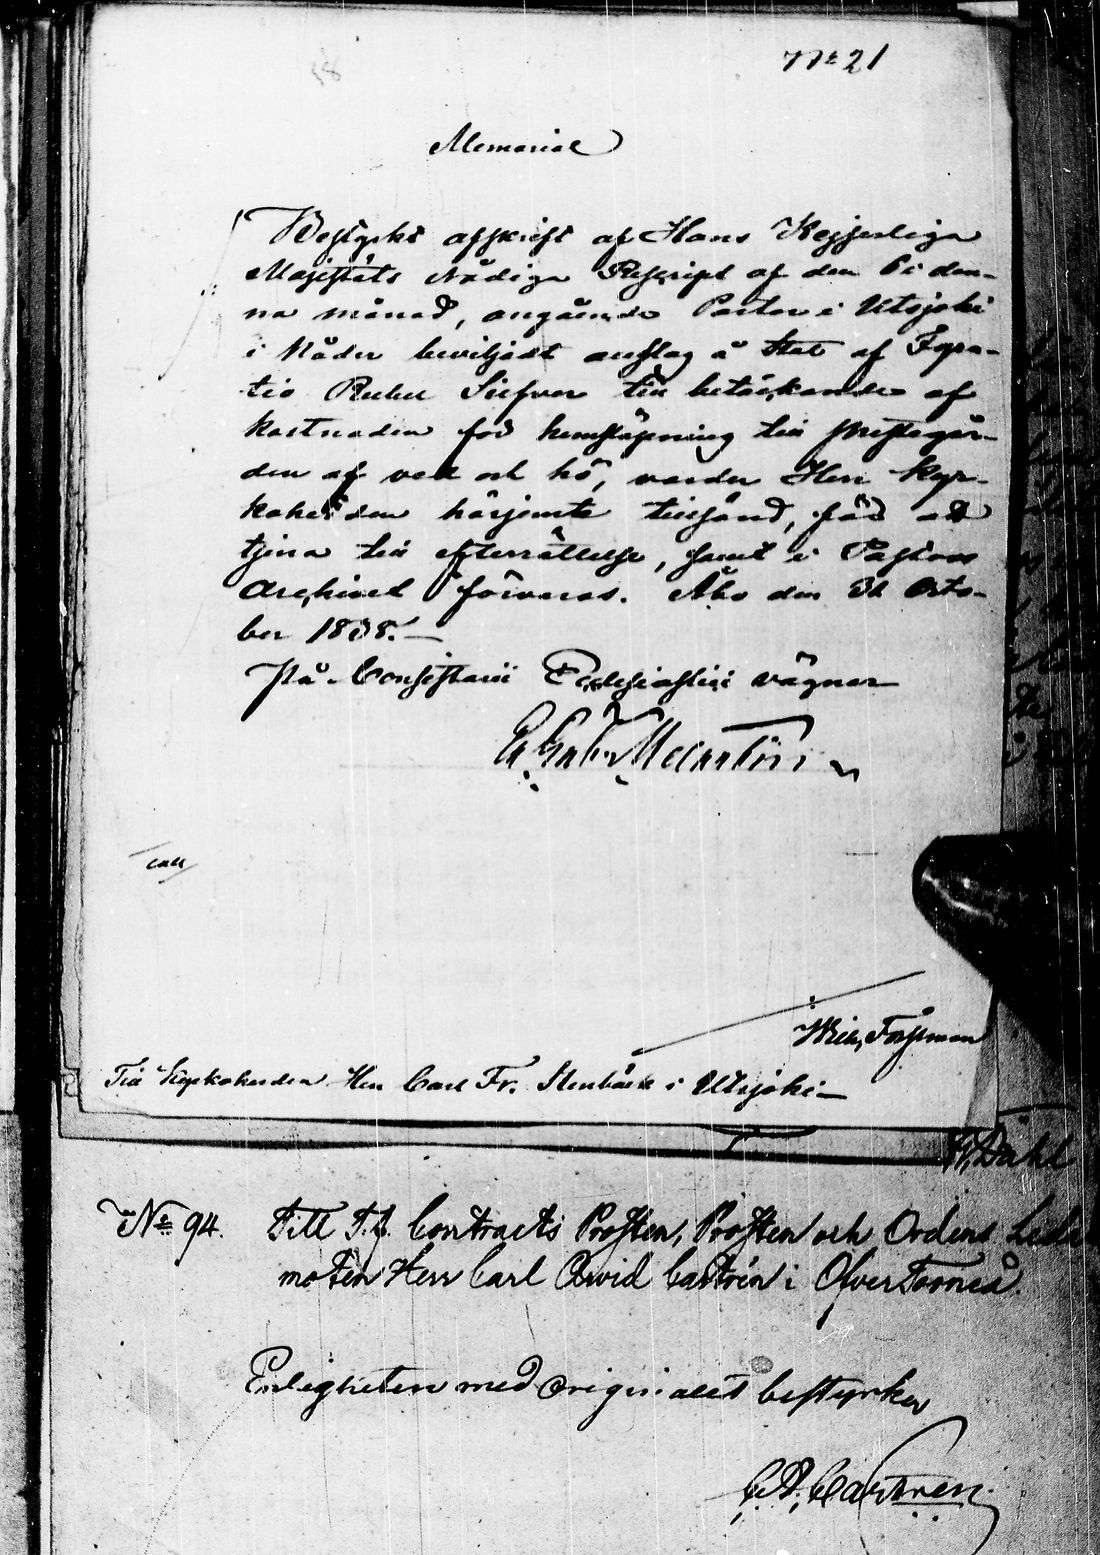 No 21
Memorial
Bestyrkt afskrift af Hans Kejserliga
Majestäts Nådiga Reskript af den 6 i den-
na månad, angående Pastor i Utsjoki
i Nåder beviljadt anslag å Stat af Fyra-
tio Rubel Silfver till betäckande af
kostnaden för hemsläpning till prestegår-
den af ved och hö, varder Herr Kyr-
koherden härjemte tillsänd, för att
tjena till efterrättelse, samt i Pastors
Archivet förvaras. Åbo den 31 Octo-
ber 1838.—
På Consistorii Ecclesiastici vägnar
Er. Gabr. Melartin
Wilh. Forssman
Till Kyrkoherden Herr Carl Fr. Stenbäck i Utsjoki—
Dahl
No 94. Till T.f. Contracts Prosten, Prosten och Ordens Leda
moten Herr Carl Arvid Castrén i ÖfverTorneå.
Enligheten med originalet bestyrker
C. A. Castrén.